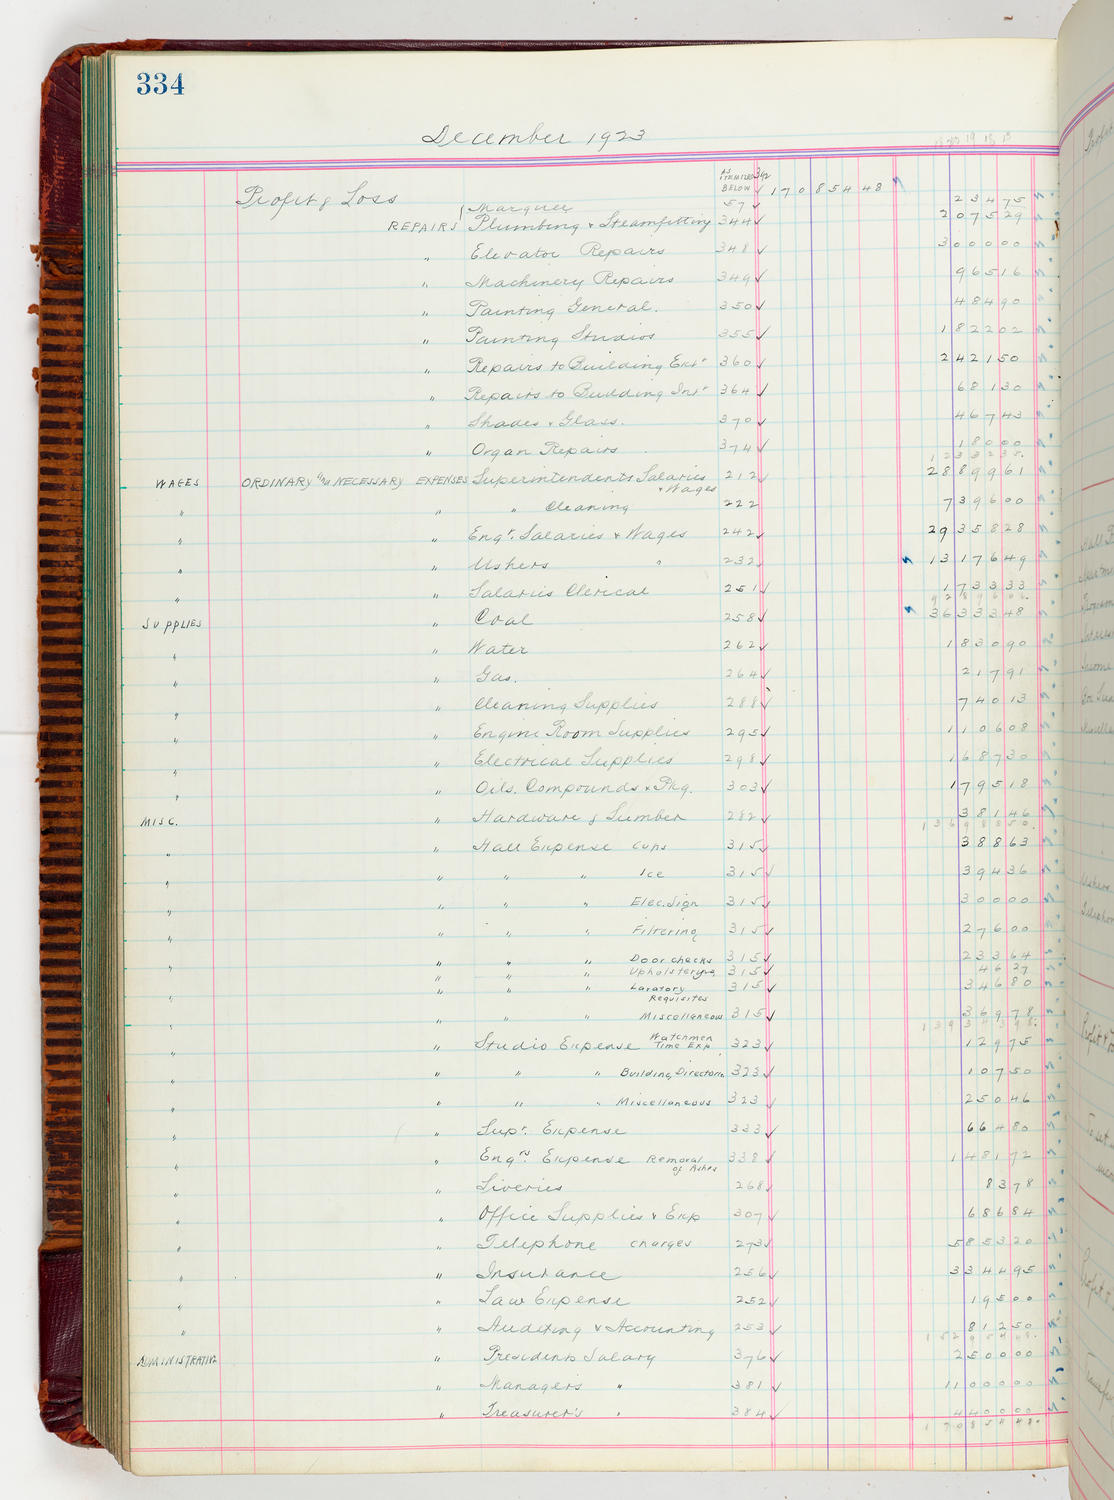 334
December 1923
13 19 13 13
Profit & Loss AS ITEMIZED BELOW 342 ✓ 170 854 48
Marquee 57 ✓ 234 75
REPAIRS Plumbing & Steamfitting 344 ✓ 2075 29
" Elevator Repairs 348 ✓ 3000 00
" Machinery Repairs 349 ✓ 965 16
" Painting General. 350 ✓ 484 90
" Painting Studios 355 ✓ 1822 02
" Repairs to Building Extr 360 ✓ 2421 50
" Repairs to Building Intr 364 ✓ 681 30
" Shades & Glass. 370 ✓ 467 43
" Organ Repairs 374 ✓ 180 00
12332 38.
WAGES ORDINARY and NECESSARY EXPENSES Superintendents Salaries & Wages 212 ✓ 28899 61
" " " Cleaning 222 7396 00
" " Engr. Salaries & Wages 242 ✓ 29358 28
" " Ushers " 232 ✓ 13176 49
" " Salaries Clerical 251 ✓ 1733 33
92896 06.
SUPPLIES " Coal 258 ✓ 36333 48
" " Water 262 ✓ 1830 90
" " Gas. 264 ✓ 217 91
" " Cleaning Supplies 288 ✓ 740 13
" " Engine Room Supplies 295 ✓ 1106 08
" " Electrical Supplies 298 ✓ 1687 30
" " Oils. Compounds & Pkg. 303 ✓ 1795 18
MISC. " Hardware & Lumber 282 ✓ 381 46
136988 50.
" " Hall Expense Cups 315 ✓ 388 63
" " " " Ice 315 ✓ 394 36
" " " " Elec. Sign 315 ✓ 300 00
" " " " Filtering 315 ✓ 276 00
" " " " Door checks 315 ✓ 233 64
" " " Upholstering 315 ✓ 46 27
" " " " Lavatory Requisites 315 ✓ 346 80
" " " " Miscellaneous 315 ✓ 369 78
139343 98.
" " Studio Expense Watchmen Time Exp. 323 ✓ 129 75
" " " " Building Directories 323 ✓ 107 50
" " " " Miscellaneous 323 ✓ 250 46
" " Supt. Expense 333 ✓ 664 80
" " Engrs. Expense Removal of Ashes 338 ✓ 1481 72
" " Liveries 268 ✓ 83 78
" " Office Supplies & Exp 307 ✓ 686 84
" " Telephone charges 273 ✓ 5853 20
" " Insurance 256 ✓ 3344 95
" " Law Expense 252 ✓ 195 00
" " Auditing & Accounting 253 ✓ 812 50
152954 48.
ADMINISTRATIVE " Presidents Salary 376 ✓ 2500 00
" Managers " 381 ✓ 11000 00
" Treasurer's " 384 ✓ 4400 00
170854 48.